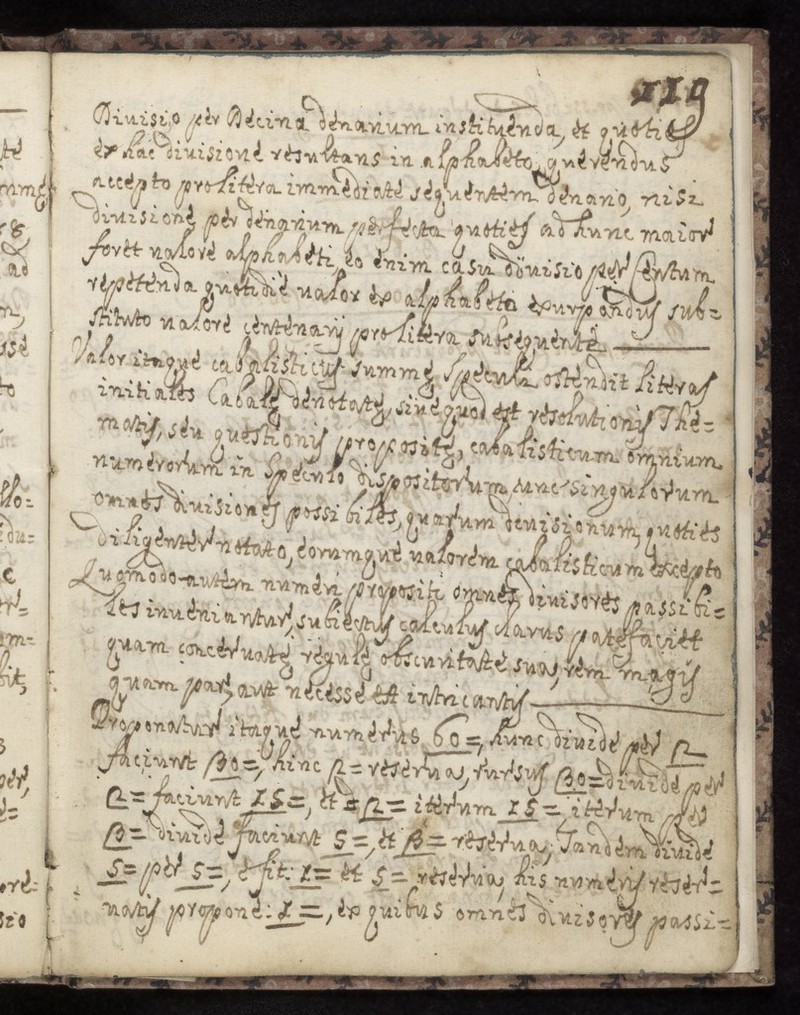 119
Diuisio per Decina denarium instituenda, et quoties
ex hac diuisione resultans in alphabeto querendus
accepto pro litera immediate sequentem denario, nisi
diuisione per denarium perfecta quoties ad hunc maior
foret ualore alphabeti, eo enim casu diuisio per Centum
repetenda quotidie ualor ex alphabeto sub=
stituto ualore centenarij pro litera subsequente
Valor itaque cabalisticus summę Speculi ostendit literas
initiales Cabalę denotatę, siue quod est resolutionis The=
matis, seu questionis propositę, cabalisticum omnium
numerorum in Speculo dispositorum nunc singulorum
omnes diuisiones possibiles, quarum deuisionum, quoties
diligenter notato, eorumque ualorem cabalisticum excepto
Quomodo autem numeri propositi omnes diuisores passibi=
les inueniantur, subiectus calculus clarus patefaciet
quam regulę obscuritate sua, rem magis
quam par, aut necesse est intricantis
Proponatur itaque numerus 60=, hunc diuide per 2
faciunt 30=, hinc 2= reserua, rursus 30= diuide per
2= faciunt 15=, et 2= iterum 15= iterum per
3= diuide faciunt 5=, et 3= reserua; Tandem diuide
5= per 5=, e fit: 1= et 5= reserua, his numeris reser=
uatis propone: 1=, ex quibus omnes diuisores passi=